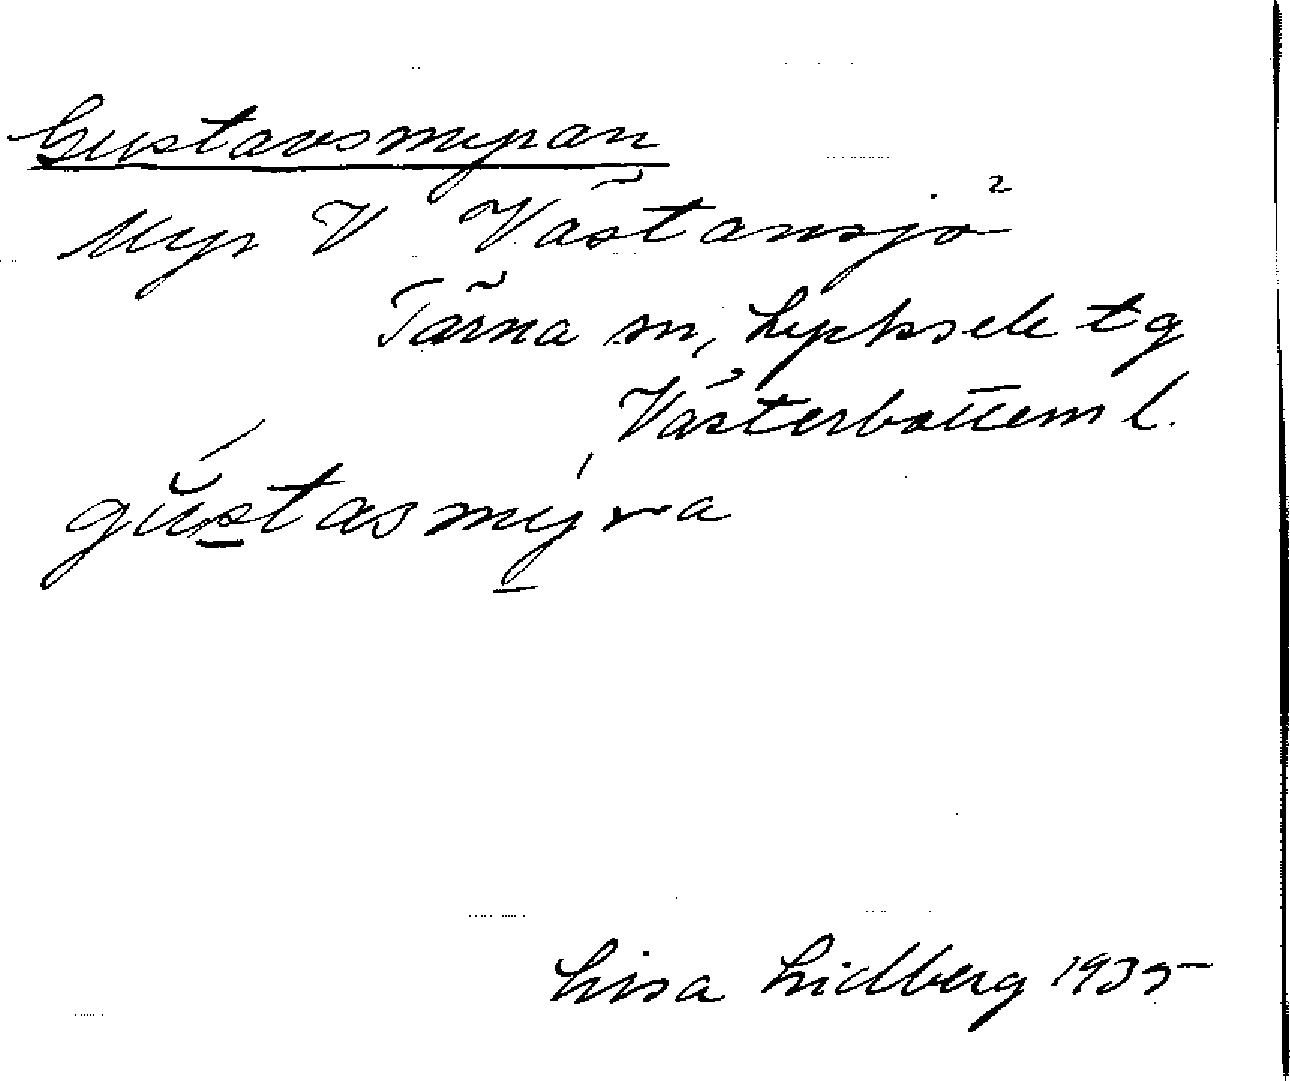 Gustavsmyran
Myr V Västansjö
Tärna sn, Lycksele tg
Västerbottens l.
gŭstasmyra
Lisa Lidberg 1935